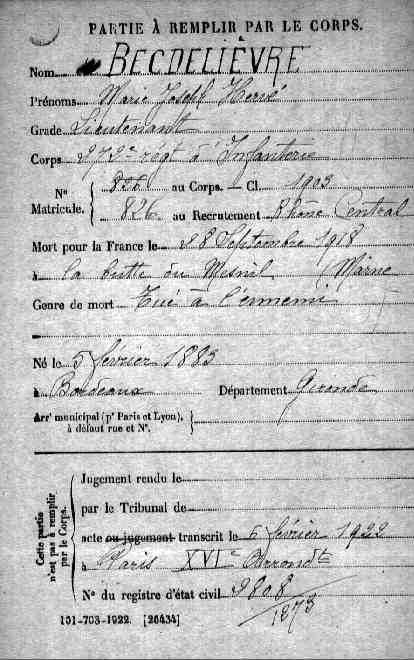 PARTIE À REMPLIR PAR LE CORPS.
Nom BECDELIÈVRE
Prénoms Marie Joseph Hervé
Grade Lieutenant
Corps 272e régt d'Infanterie
N° Matricule. { 826 au Corps. — Cl. 1903
826 au Recrutement Rhône Central
Mort pour la France le 28 Septembre 1918
à la butte du Mesnil (Marne
Genre de mort Tué à l'ennemi
Né le 5 février 1883
à Bordeaux Département Gironde
Arrt municipal (pr Paris et Lyon), à défaut rue et N°.
Cette partie n'est pas à remplir par le Corps.
Jugement rendu le
par le Tribunal de
acte ou jugement transcrit le 6 février 1922
à Paris XVIe Arrondt
N° du registre d'état civil 2808/1273
101-703-1922. [26434]